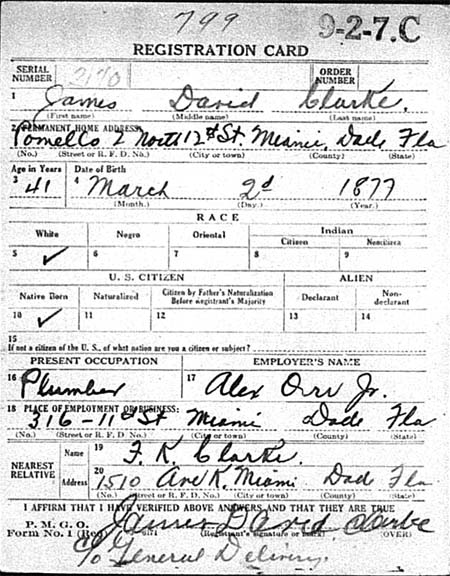 799
9-2-7.C
REGISTRATION CARD
SERIAL NUMBER 2170 ORDER NUMBER
1 James David Clarke.
(First name) (Middle name) (Last name)
2 PERMANENT HOME ADDRESS:
Pomello & North 12th St. Miami, Dade Fla
(No.) (Street or R. F. D. No.) (City or town) (County) (State)
Age in Years Date of Birth
3 41 4 March 2d 1877
(Month.) (Day.) (Year.)
RACE
White Negro Oriental Indian
Citizen Noncitizen
5 ✓ 6 7 8 9
U. S. CITIZEN ALIEN
Native Born Naturalized Citizen by Father's Naturalization Before Registrant's Majority Declarant Non-declarant
10 ✓ 11 12 13 14
15
If not a citizen of the U. S., of what nation are you a citizen or subject?
PRESENT OCCUPATION EMPLOYER'S NAME
16 Plumber 17 Alex Orr Jr.
18 PLACE OF EMPLOYMENT OR BUSINESS:
316-11th St Miami Dade Fla
(No.) (Street or R. F. D. No.) (City or town) (County) (State)
NEAREST RELATIVE Name 19 F. K. Clarke.
Address 20 1510 Ave K, Miami Dade Fla
(No.) (Street or R. F. D. No.) (City or town) (County) (State)
I AFFIRM THAT I HAVE VERIFIED ABOVE ANSWERS AND THAT THEY ARE TRUE
P. M. G. O.
Form No. 1 (Red) James David Clarke
(Registrant's signature or mark) (OVER)
c/o General Delivery.